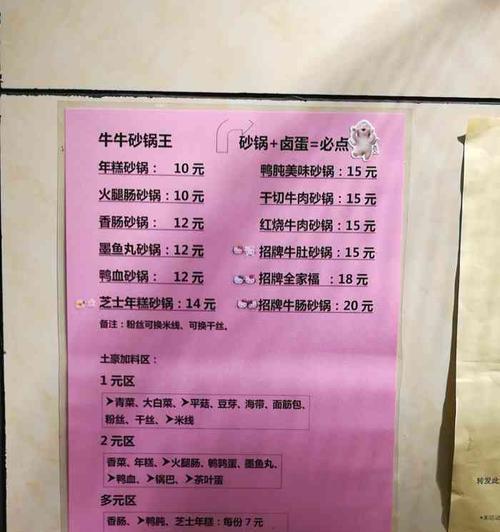 牛牛砂锅王
砂锅+卤蛋=必点
年糕砂锅：10元
火腿肠砂锅：10元
香肠砂锅：12元
墨鱼丸砂锅：12元
鸭血砂锅：12元
芝士年糕砂锅：14元
鸭肫美味砂锅：15元
干切牛肉砂锅：15元
红烧牛肉砂锅：15元
招牌牛肚砂锅：15元
招牌全家福：18元
招牌牛肠砂锅：20元
备注：粉丝可换米线、可换干丝。
土豪加料区：
1元区
➤青菜、大白菜、➤平菇、豆芽、海带、面筋包、
粉丝、干丝、➤米线
2元区
香菜、年糕、➤火腿肠、鹌鹑蛋、墨鱼丸、
➤鸭血、➤锅巴、➤茶叶蛋
多元区
香肠、➤鸭肫、芝士年糕：每份7元
转发此